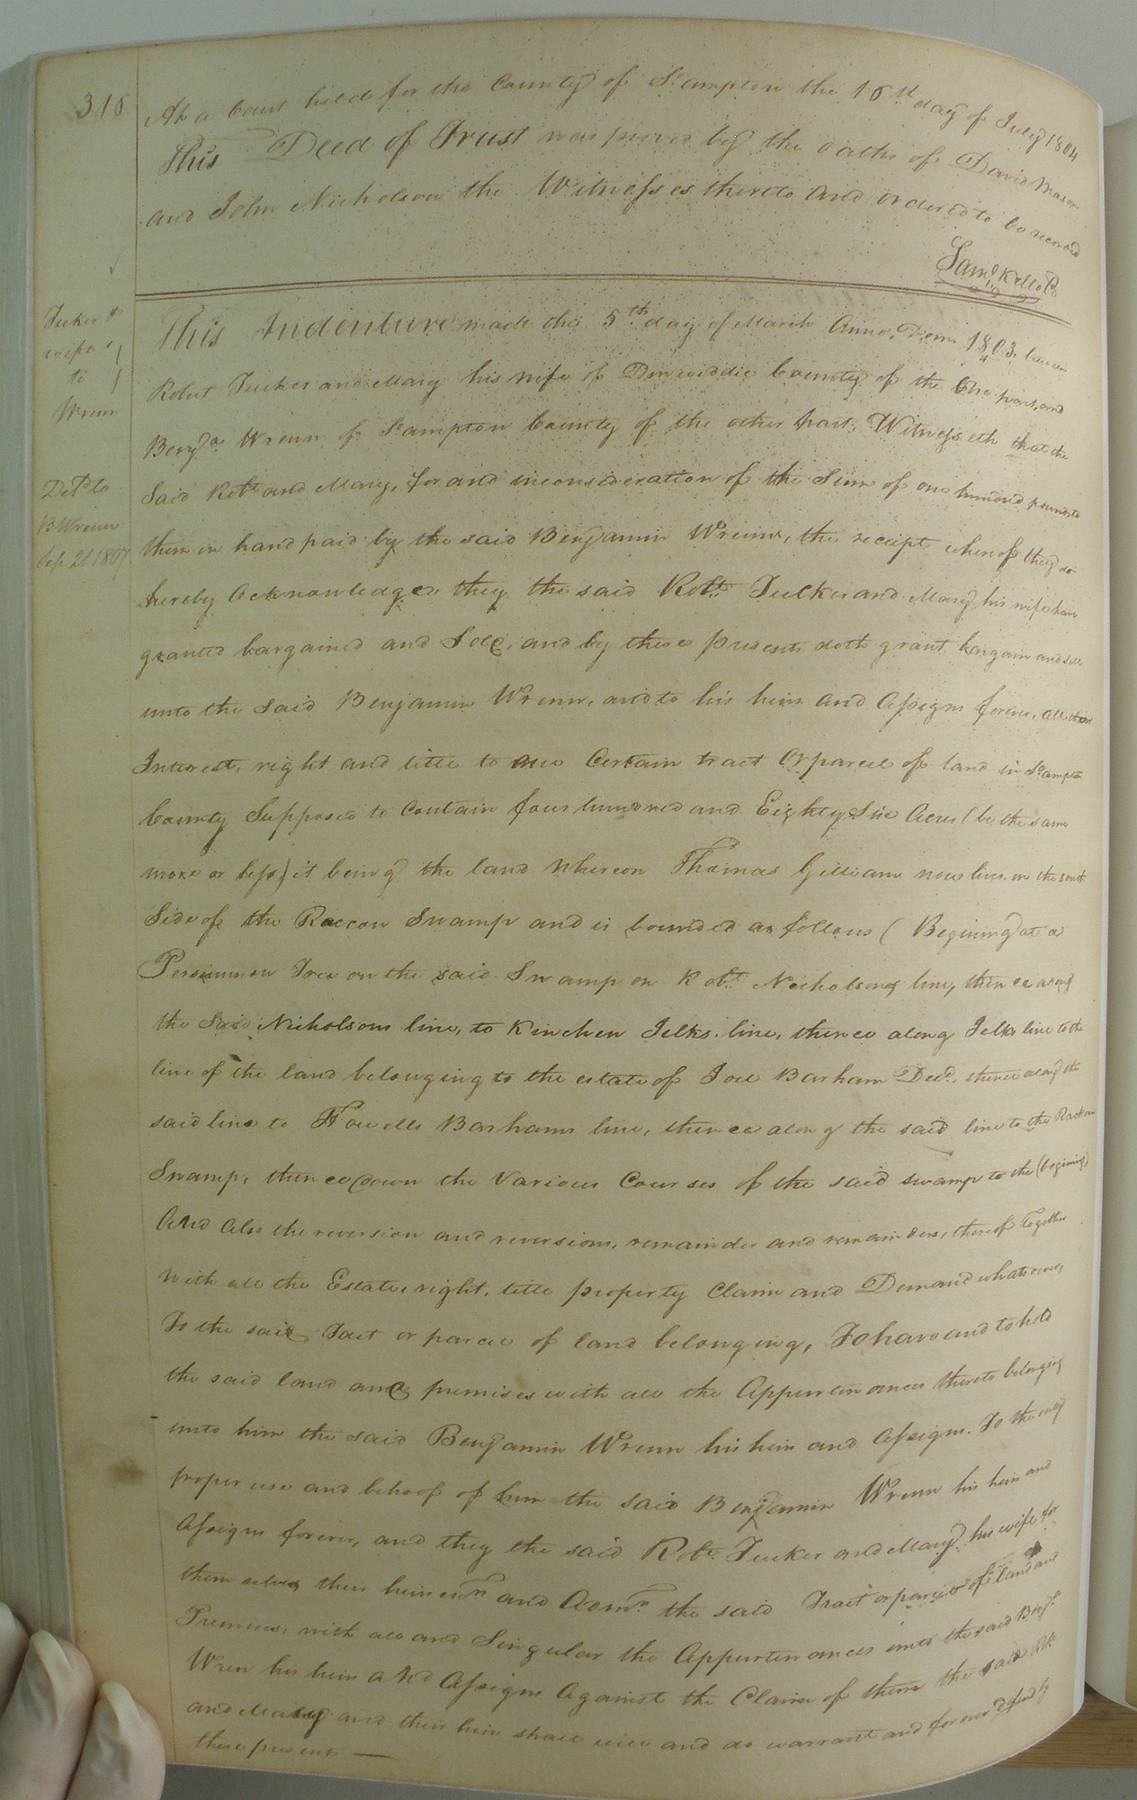 316
At a Court held for the County of S.ampton the 16th day of July 1804
This Deed of Trust was proved by the oaths of David Mason
and John Nicholson the Witnesses thereto and ordered to be record
Saml Kello Cc
Tucker &
to
Wrenn
Deld to
B Wrenn
Sep 21 1807
This Indenture made the 5th day of March Anno, Domi 1803 between
4
Robert Tucker and Mary his wife of Dinwiddie County of the One part, and
Benja Wrenn of S.ampton County of the other part: Witnesseth that the
Said Robt and Mary, for and in consideration of the Sum of one hundred pounds, to
them in hand paid by the said Benjamin Wrenn, the receipt whereof they do
hereby Acknowledge, they the said Robt Tucker and Mary his wife have
granted bargained and Sold, and by these presents doth grant, bargain and sell
unto the said Benjamin Wrenn, and to his heirs and Assigns forever, all their
Interest, right and title to one Certain tract Or parcel of land in S.ampton
County Supposed to Contain four hundred and Eighty Six Acres (be the same
more or less) it being the land whereon Thomas Gilliam now lives on the south
Side of the Raccon Swamp and is bounded as follows (Begining at a
Persimmon Tree on the said Swamp on Robt Nicholsons line, thence along
the Said Nicholsons line, to Kinchen Jelks. line, thence along Jelks line to the
line of the land belonging to the estate of Joel Barham Decd, thence along the
said line to Howells Barhams line, thence along the said line to the Raccon
Swamp, thence down the Various Courses of the said swamp to the (begining)
And also the reversion and reversions, remainder and remainders, thereof Together
With all the Estate, right, title property Claim and Demand whatsoever,
To the said Tract or parcel of land belonging, To have and to hold
the said land and premises with all the Appurtenances thereto belonging
unto him the said Benjamin Wrenn his heirs and Assigns. To the only
proper use and behoof of him the said Benjamin Wrenn his heirs and
Assigns forever, and they the said Robt Tucker and Mary his wife for
them selves their heirs exrs and Admrs the said Tract or parcel of land and
Premises, with all and Singular the Appurtenances unto the said Benja
Wren his heirs and Assigns Against the Claim of them the said Robt
and Mary and their heirs shall will and do warrant and forever defend by
these presents —